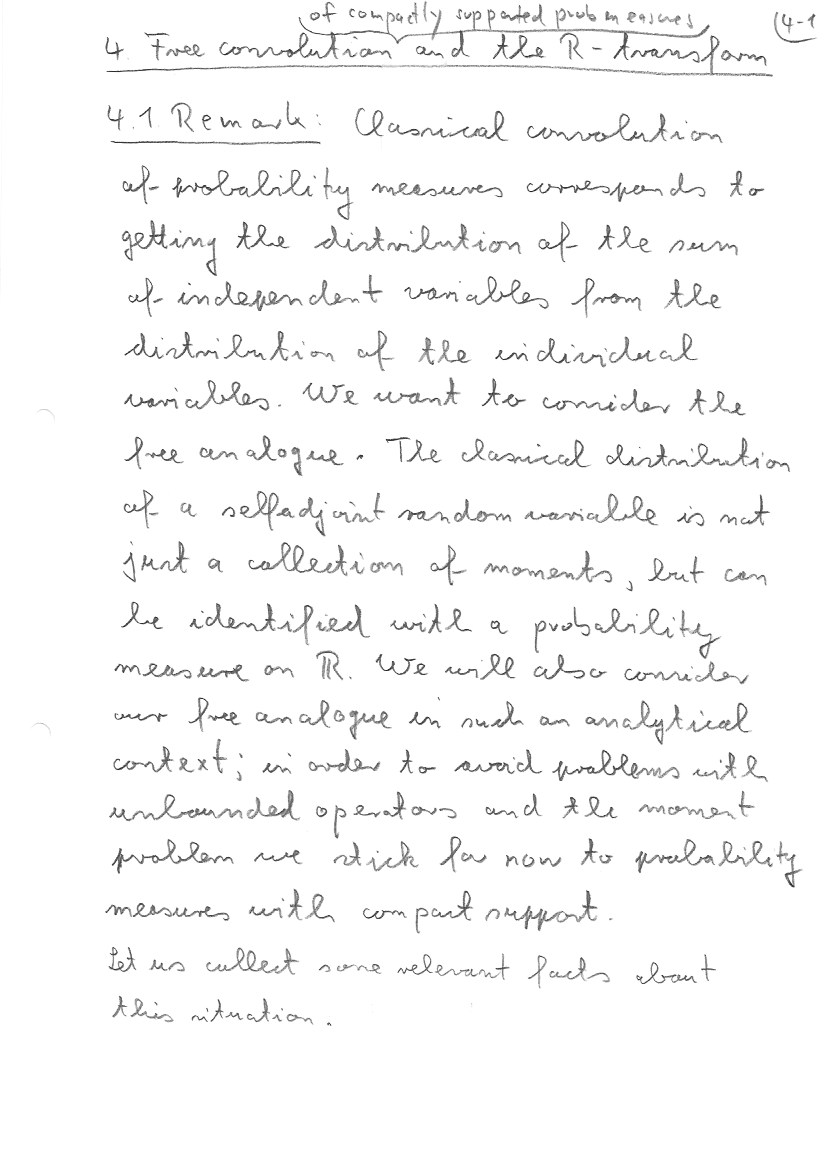 of compactly supported prob measures
4-1
4 Free convolution and the R-transform
4.1 Remark: Classical convolution
of probability measures corresponds to
getting the distribution of the sum
of independent variables from the
distribution of the individual
variables. We want to consider the
free analogue. The classical distribution
of a selfadjoint random variable is not
just a collection of moments, but can
be identified with a probability
measure on ℝ. We will also consider
our free analogue in such an analytical
context; in order to avoid problems with
unbounded operators and the moment
problem we stick for now to probability
measures with compact support.
Let us collect some relevant facts about
this situation.